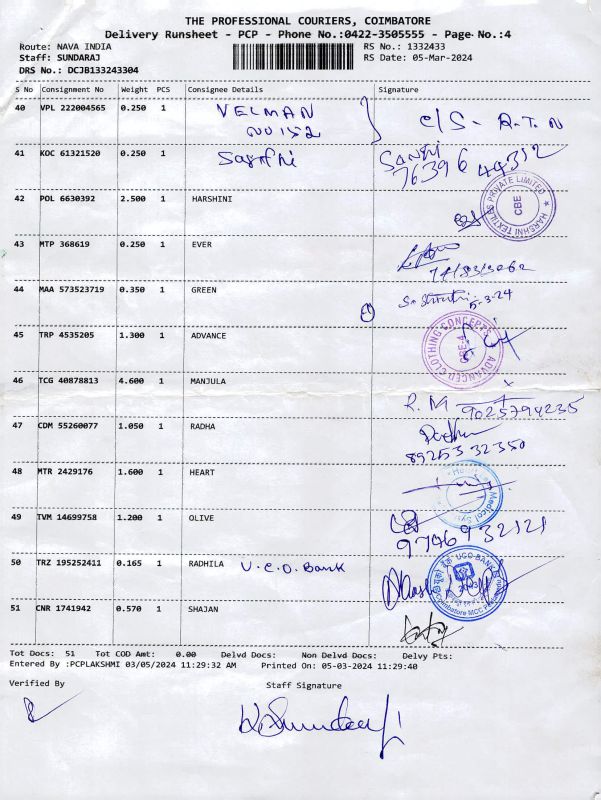 THE PROFESSIONAL COURIERS, COIMBATORE
Delivery Runsheet - PCP - Phone No.:0422-3505555 - Page No.:4
Route: NAVA INDIA RS No.: 1332433
Staff: SUNDARAJ RS Date: 05-Mar-2024
DRS No.: DCJB133243304
S No Consignment No Weight PCS Consignee Details Signature
40 VPL 222004565 0.250 1 VELMAN C/S - R.T.N
41 KOC 61321520 0.250 1
42 POL 6630392 2.500 1 HARSHINI
HARSHNI TEXTILES PRIVATE LIMITED CBE
43 MTP 368619 0.250 1 EVER
44 MAA 573523719 0.350 1 GREEN 5-3-24
45 TRP 4535205 1.300 1 ADVANCE
ADVANCED CLOTHING CONCEPTS CBE-4
46 TCG 40878813 4.600 1 MANJULA
R. M 9025794235
47 CDM 55260077 1.050 1 RADHA
89253 32350
48 MTR 2429176 1.600 1 HEART
Medical
49 TVM 14699758 1.200 1 OLIVE
9746932121
50 TRZ 195252411 0.165 1 RADHILA U.C.O. Bank
UCO-BANK
Coimbatore
51 CNR 1741942 0.570 1 SHAJAN
Tot Docs: 51 Tot COD Amt: 0.00 Delvd Docs: Non Delvd Docs: Delvy Pts:
Entered By :PCPLAKSHMI 03/05/2024 11:29:32 AM Printed On: 05-03-2024 11:29:40
Verified By Staff Signature